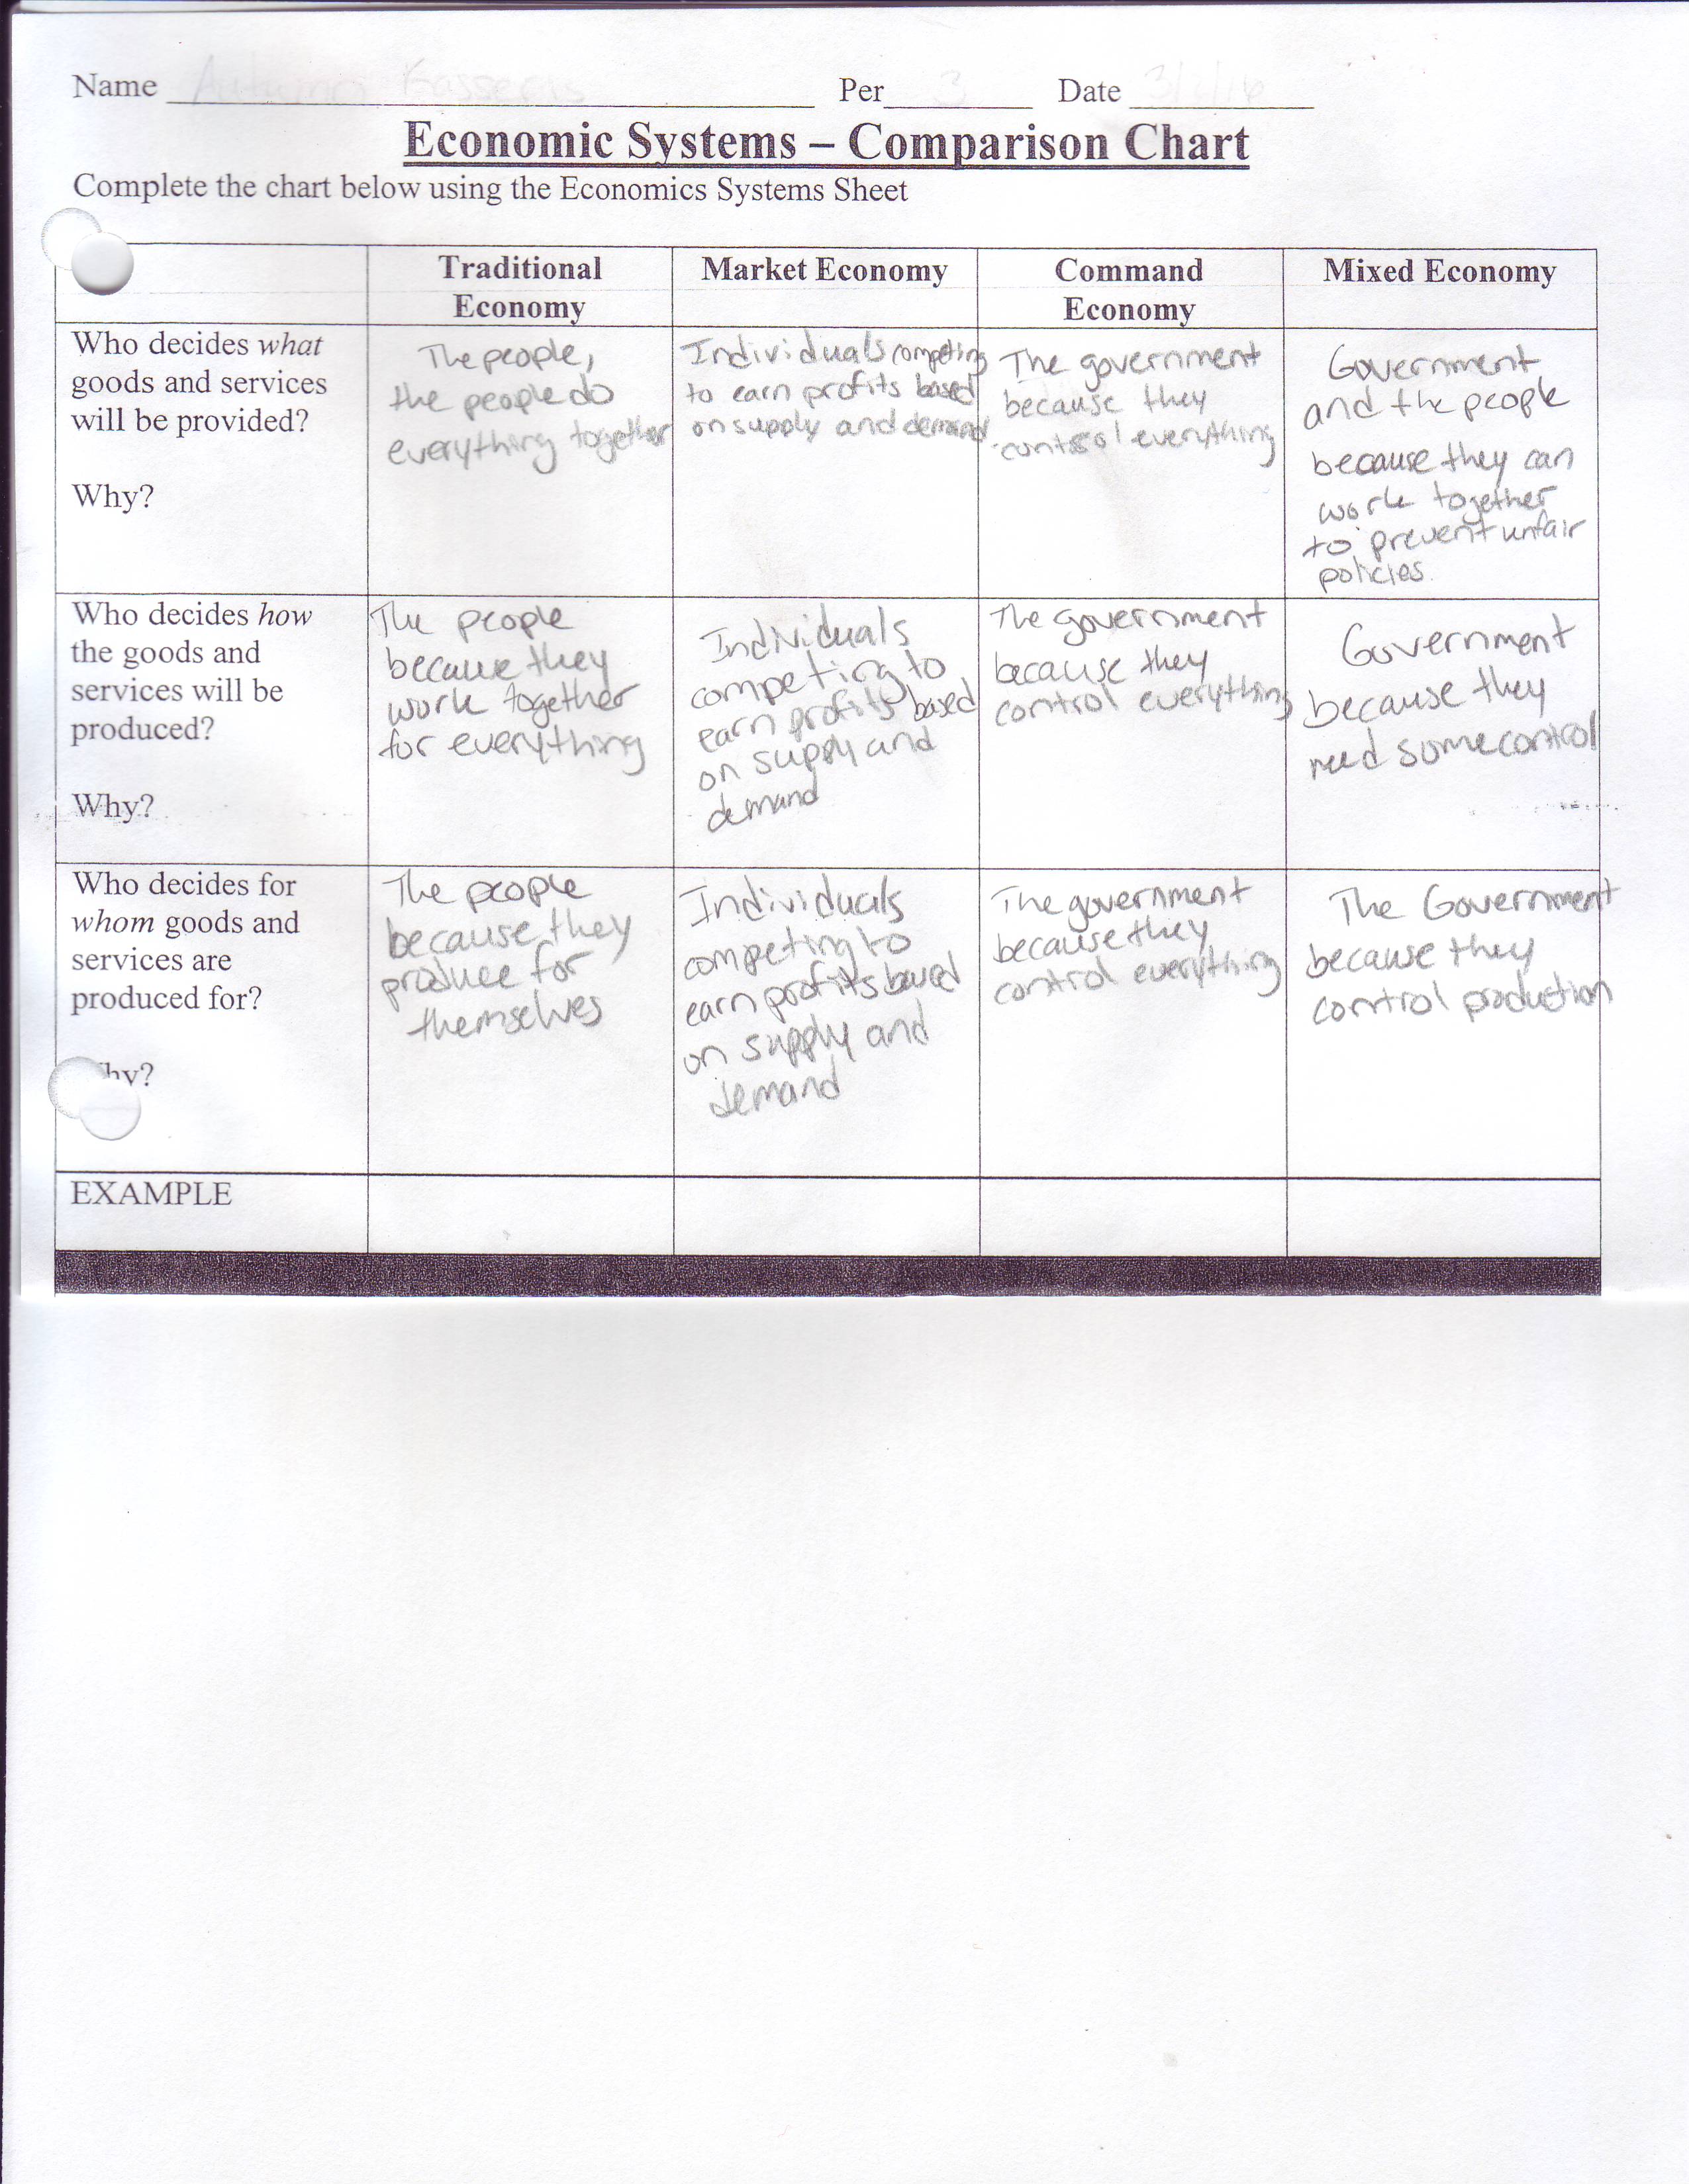 Name Autumn Per 3 Date
Economic Systems – Comparison Chart
Complete the chart below using the Economics Systems Sheet
Traditional
Economy
Market Economy
Command
Economy
Mixed Economy
Who decides what
goods and services
will be provided?
Why?
The people,
the people do
everything together
Individuals competing
to earn profits based
on supply and demand
The government
because they
control everything
Government
and the people
because they can
work together
to prevent unfair
policies.
Who decides how
the goods and
services will be
produced?
Why?
The people
because they
work together
for everything
Individuals
competing to
earn profits based
on supply and
demand
The government
because they
control everything
Government
because they
need some control
Who decides for
whom goods and
services are
produced for?
hy?
The people
because they
produce for
themselves
Individuals
competing to
earn profits based
on supply and
demand
The government
because they
control everything
The Government
because they
control production
EXAMPLE